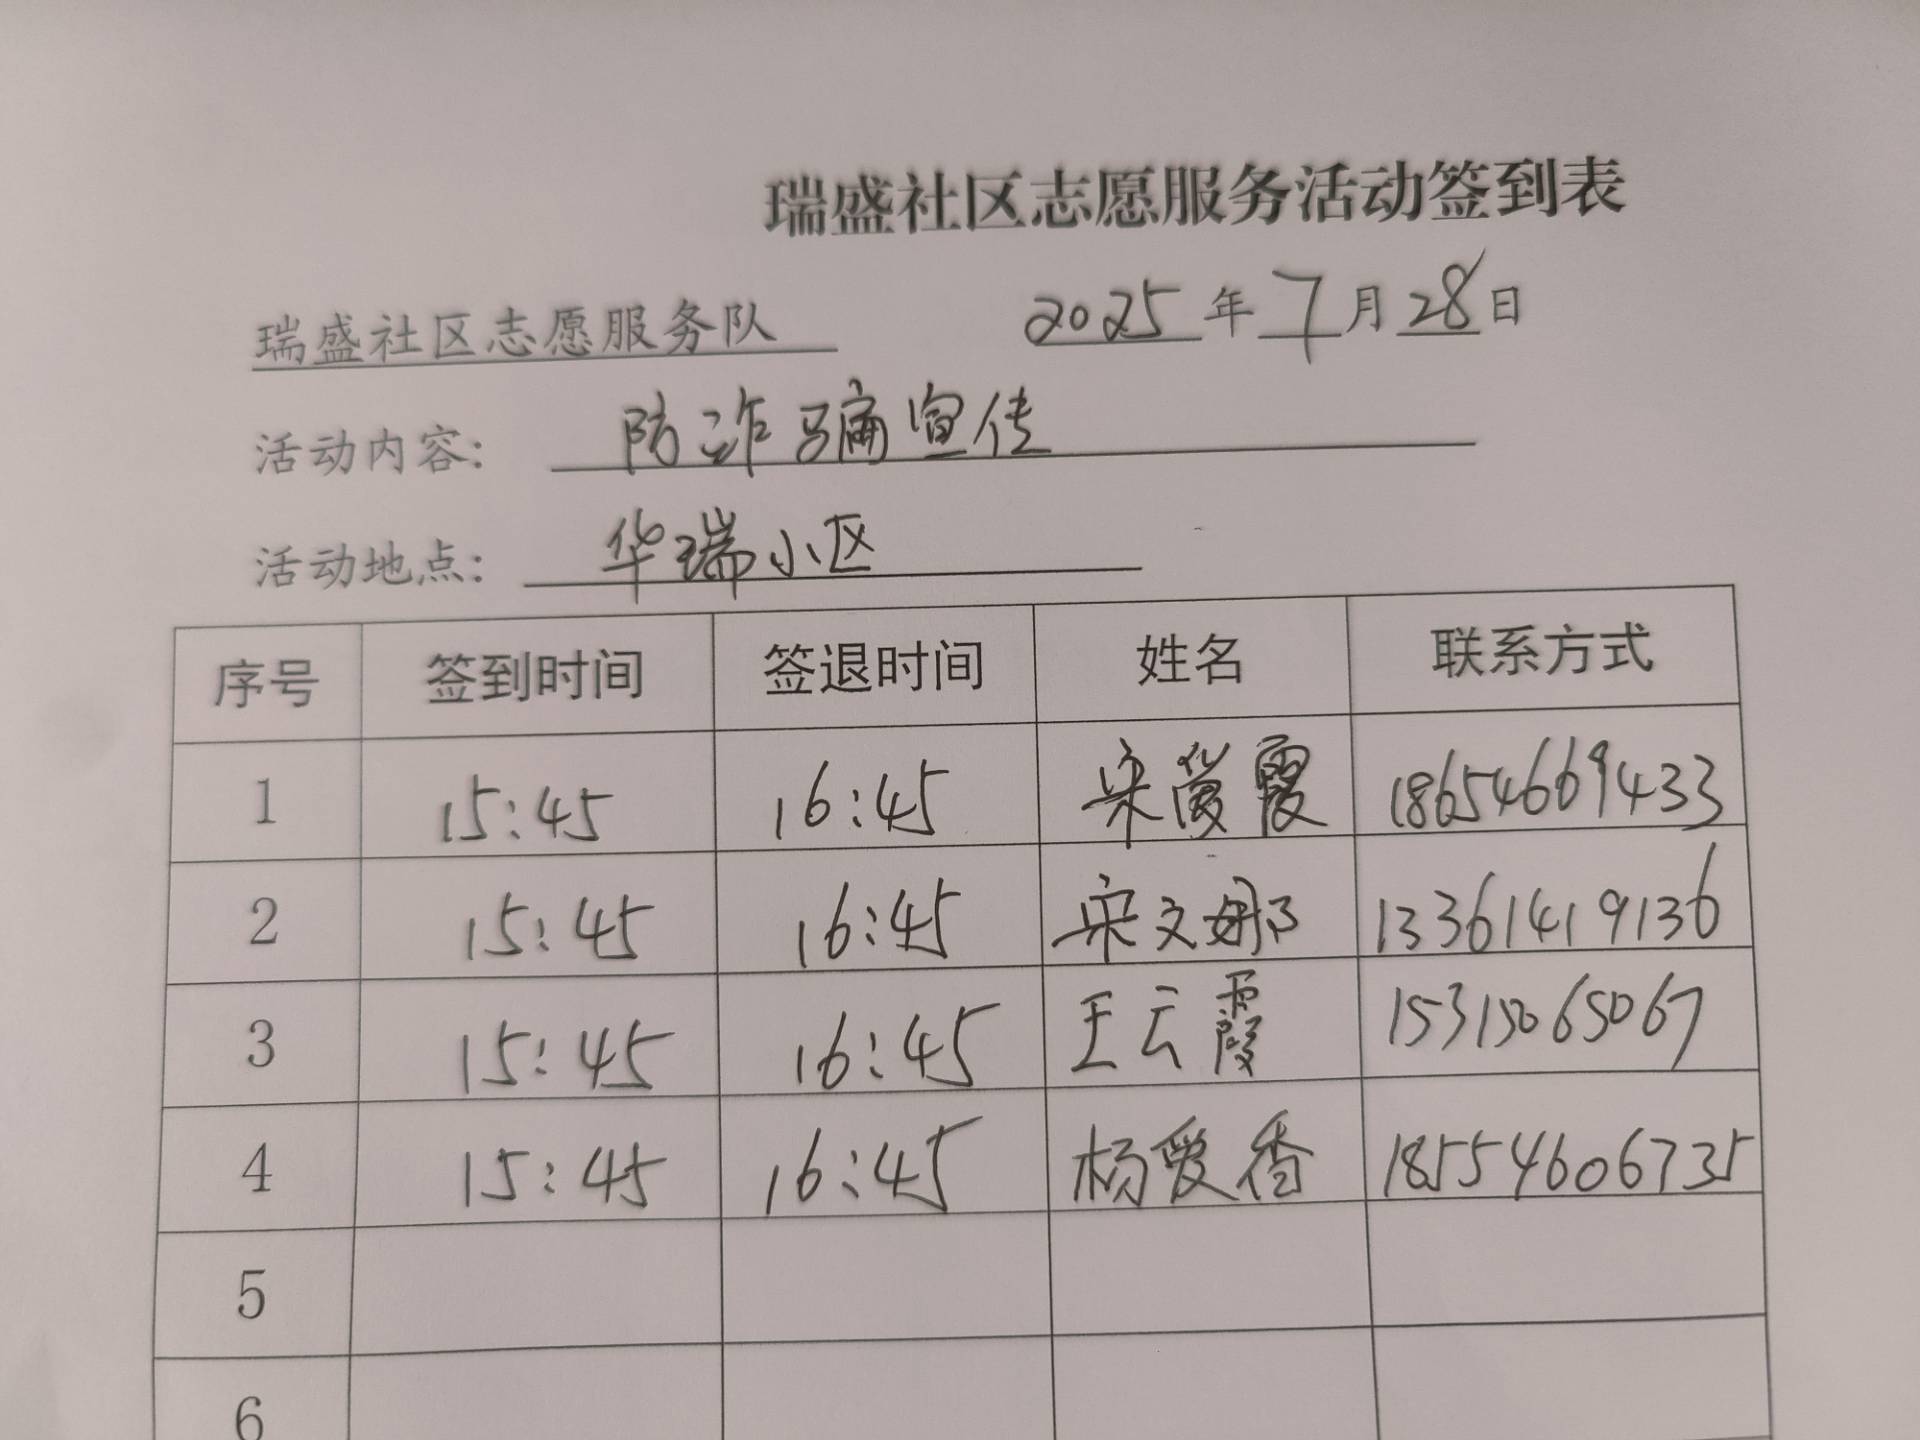 瑞盛社区志愿服务活动签到表
瑞盛社区志愿服务队 2025年7月28日
活动内容： 防诈骗宣传
活动地点： 华瑞小区
序号 签到时间 签退时间 姓名 联系方式
1 15:45 16:45 宋爱霞 18654669433
2 15:45 16:45 宋文娜 13361419136
3 15:45 16:45 王云霞 15315065067
4 15:45 16:45 杨爱香 18554606735
5
6